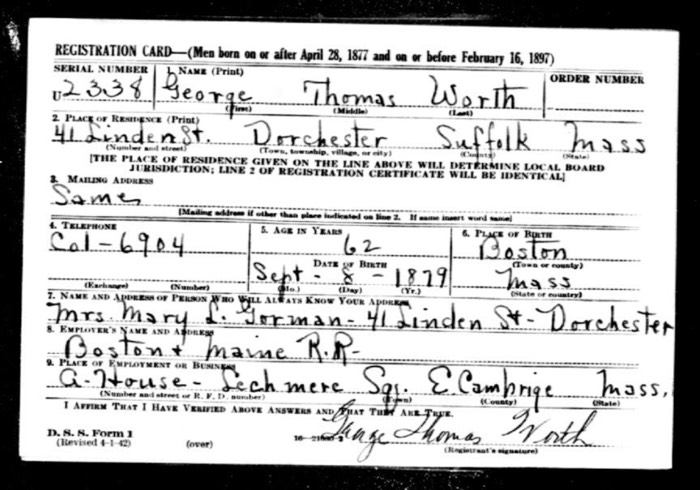 REGISTRATION CARD—(Men born on or after April 28, 1877 and on or before February 16, 1897)
SERIAL NUMBER 1. NAME (Print) ORDER NUMBER
U 2338 George Thomas Worth
(First) (Middle) (Last)
2. PLACE OF RESIDENCE (Print)
41 Linden St. Dorchester Suffolk Mass
(Number and street) (Town, township, village, or city) (County) (State)
[THE PLACE OF RESIDENCE GIVEN ON THE LINE ABOVE WILL DETERMINE LOCAL BOARD
JURISDICTION; LINE 2 OF REGISTRATION CERTIFICATE WILL BE IDENTICAL]
3. MAILING ADDRESS
Same
[Mailing address if other than place indicated on line 2. If same insert word same]
4. TELEPHONE 5. AGE IN YEARS 6. PLACE OF BIRTH
Col-6904 62 Boston
DATE OF BIRTH (Town or county)
Sept - 8 - 1879 Mass
(Exchange) (Number) (Mo.) (Day) (Yr.) (State or country)
7. NAME AND ADDRESS OF PERSON WHO WILL ALWAYS KNOW YOUR ADDRESS
Mrs. Mary L. Gorman - 41 Linden St - Dorchester
8. EMPLOYER'S NAME AND ADDRESS
Boston + Maine R.R-
9. PLACE OF EMPLOYMENT OR BUSINESS
A-House - Lechmere Sq. E. Cambrige Mass.
(Number and street or R. F. D. number) (Town) (County) (State)
I AFFIRM THAT I HAVE VERIFIED ABOVE ANSWERS AND THAT THEY ARE TRUE.
D. S. S. Form 1 George Thomas Worth
(Revised 4-1-42) (over) (Registrant's signature)